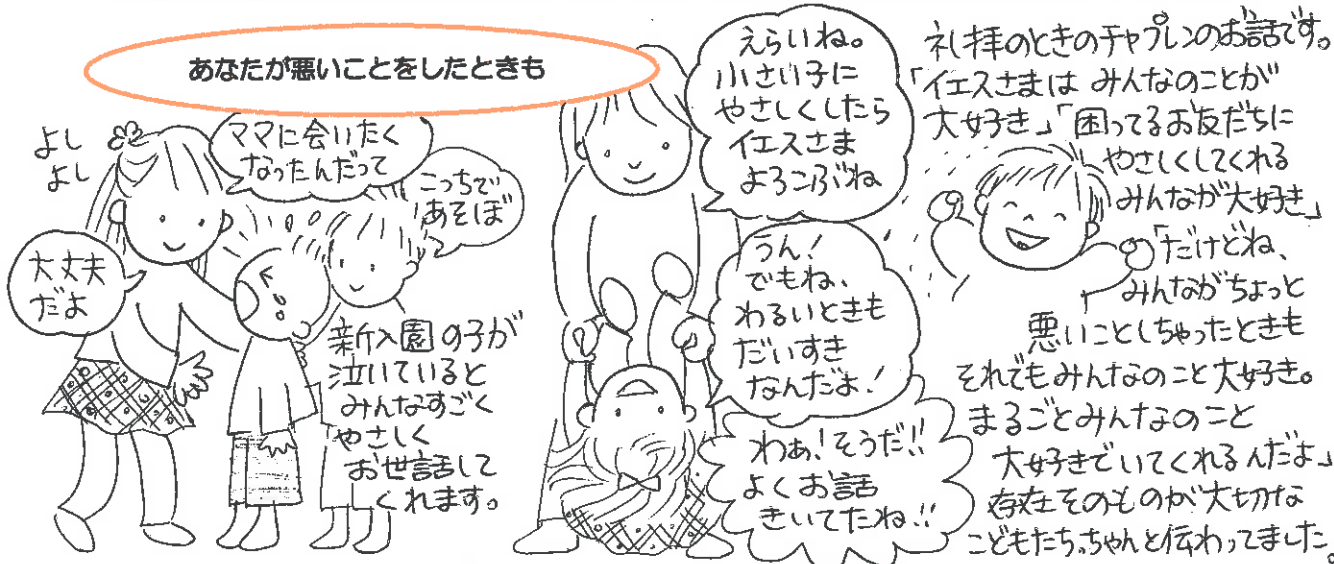 あなたが悪いことをしたときも
よし
よし
ママに会いたく
なったんだって
こっちで
あそぼ
大丈夫
だよ
新入園の子が
泣いていると
みんなすごく
やさしく
お世話して
くれます。
えらいね。
小さい子に
やさしくしたら
イエスさま
よろこぶね
うん!
でもね、
わるいときも
だいすき
なんだよ!
わぁ!そうだ!!
よくお話
きいてたね!!
礼拝のときのチャプレンのお話です。
「イエスさまは みんなのことが
大好き」「困ってるお友だちに
やさしくしてくれる
みんなが大好き」
「だけどね、
みんながちょっと
悪いことしちゃったときも
それでもみんなのこと大好き。
まるごとみんなのこと
大好きでいてくれるんだよ」
存在そのものが大切な
こどもたち、ちゃんと伝わってました。